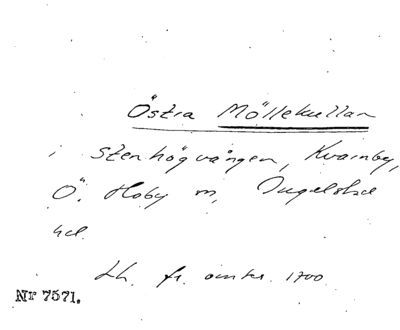 Östra Möllekullan
i Stenhögvången, Kvarnby,
Ö. Hoby sn, Ingelstad
hd.
Lh. fr. omkr. 1700.
Nr 7571.